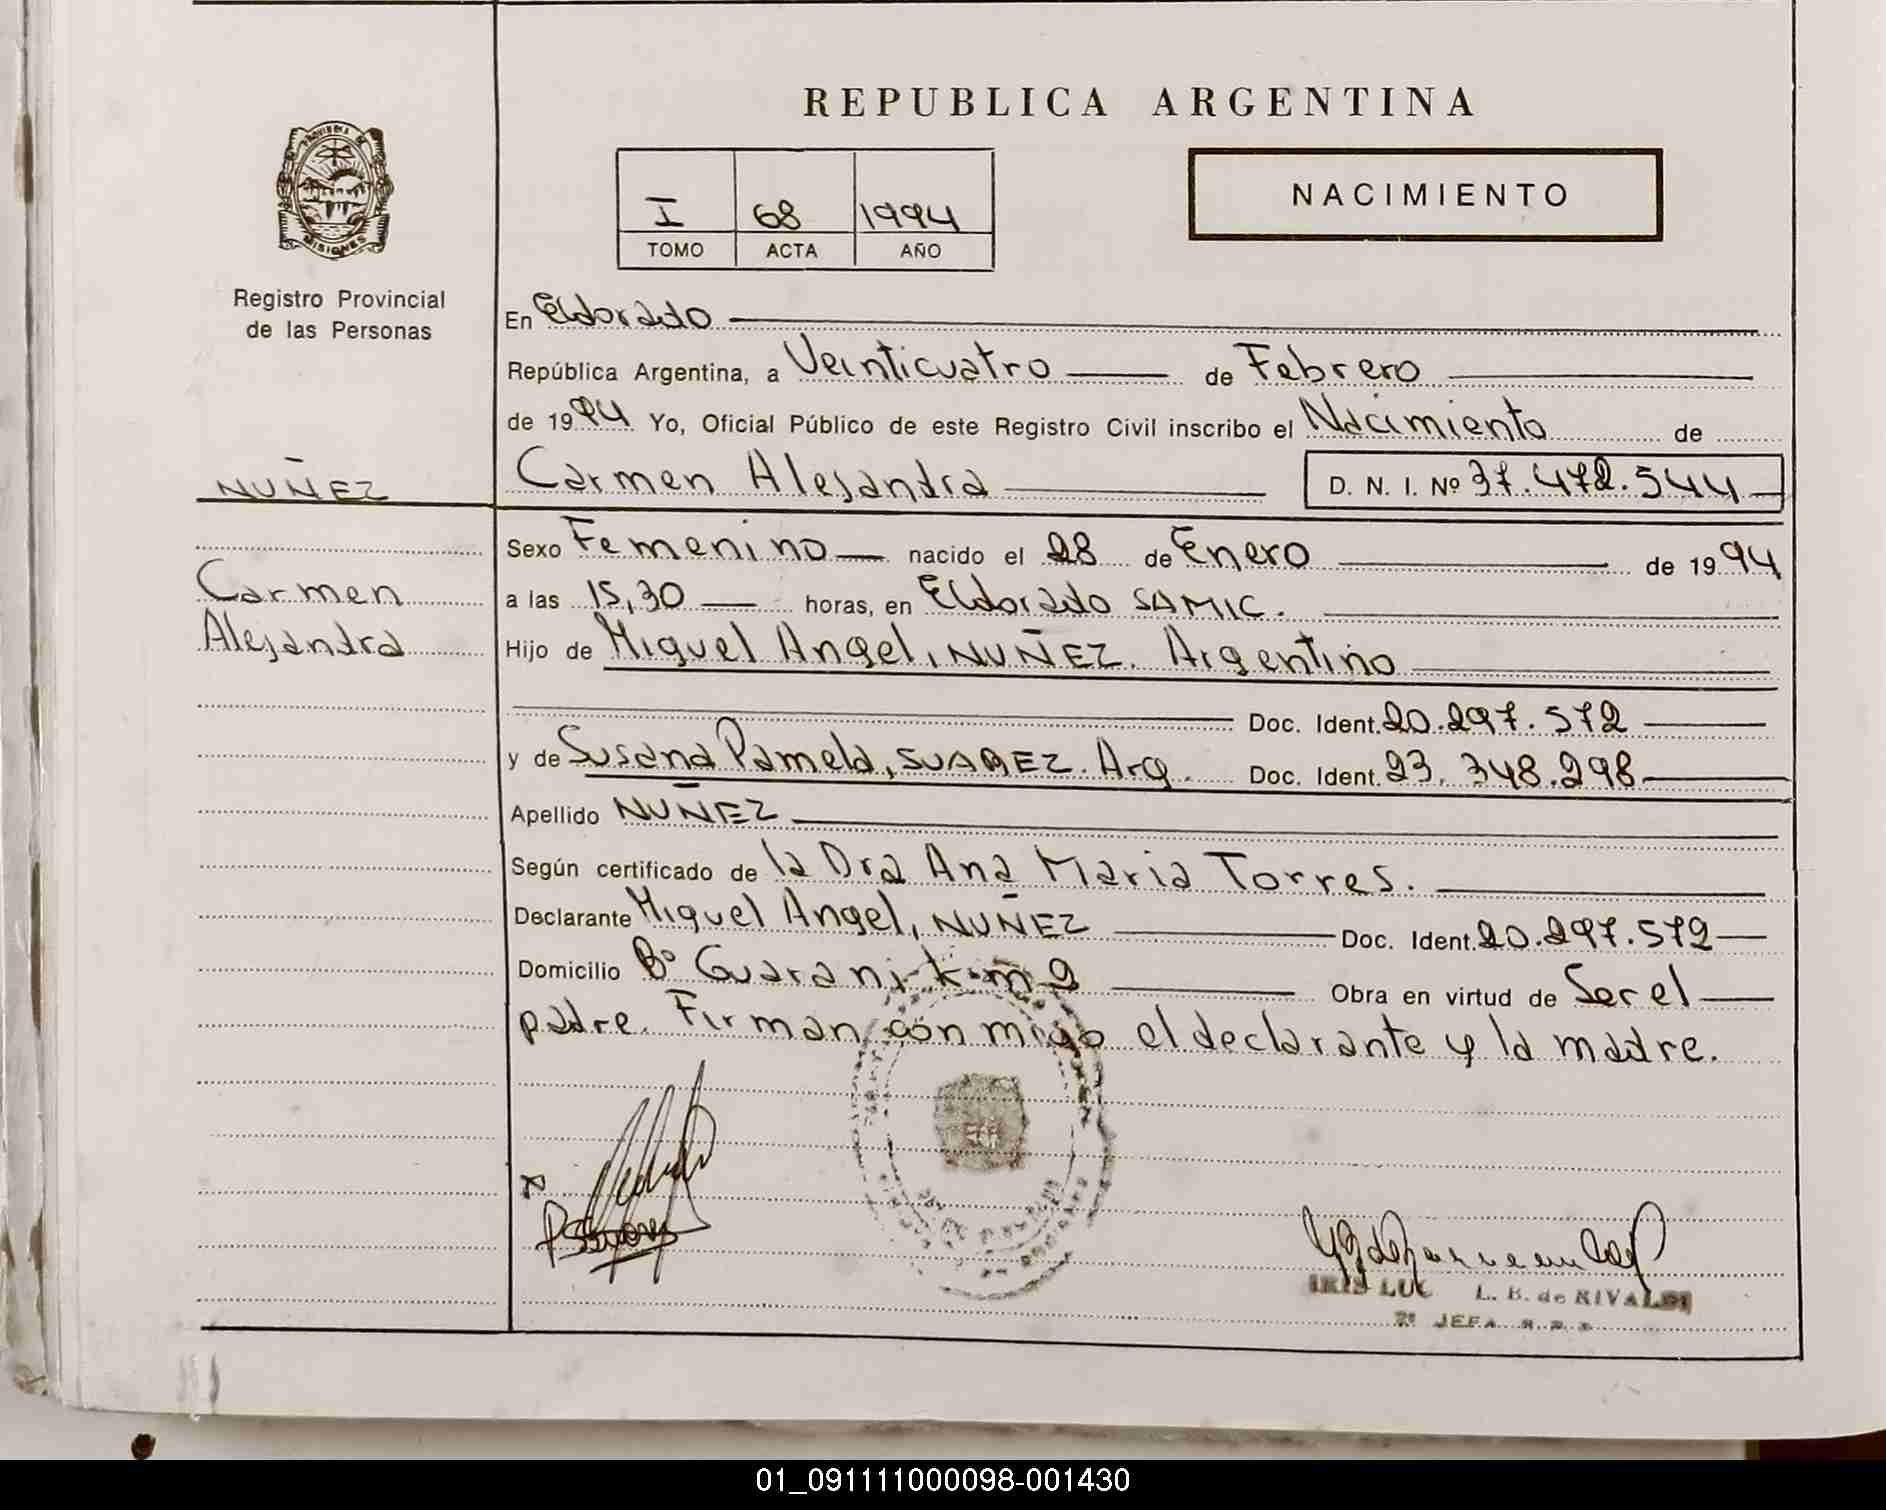 REPUBLICA ARGENTINA
PROVINCIA DE
MISIONES
Registro Provincial
de las Personas
I 68 1994
TOMO ACTA AÑO
NACIMIENTO
En Eldorado
República Argentina, a Veinticuatro de Febrero
de 1994 Yo, Oficial Público de este Registro Civil inscribo el Nacimiento de
NUÑEZ
Carmen Alejandra D. N. I. Nº 37.472.544
Sexo Femenino nacido el 28 de Enero de 1994
Carmen
a las 15,30 horas, en Eldorado SAMIC.
Alejandra
Hijo de Miguel Angel, NUÑEZ. Argentino
Doc. Ident. 20.297.572
y de Susana Pamela, SUAREZ. Arg. Doc. Ident. 23.348.298
Apellido NUÑEZ
Según certificado de la Dra Ana Maria Torres.
Declarante Miguel Angel, NUÑEZ Doc. Ident. 20.297.572
Domicilio Bº Guarani k.m 9 Obra en virtud de Ser el
padre. Firman con migo el declarante y la madre.
x
IRIS LUC L. B. de RIVALDI
JEFA
01_091111000098-001430